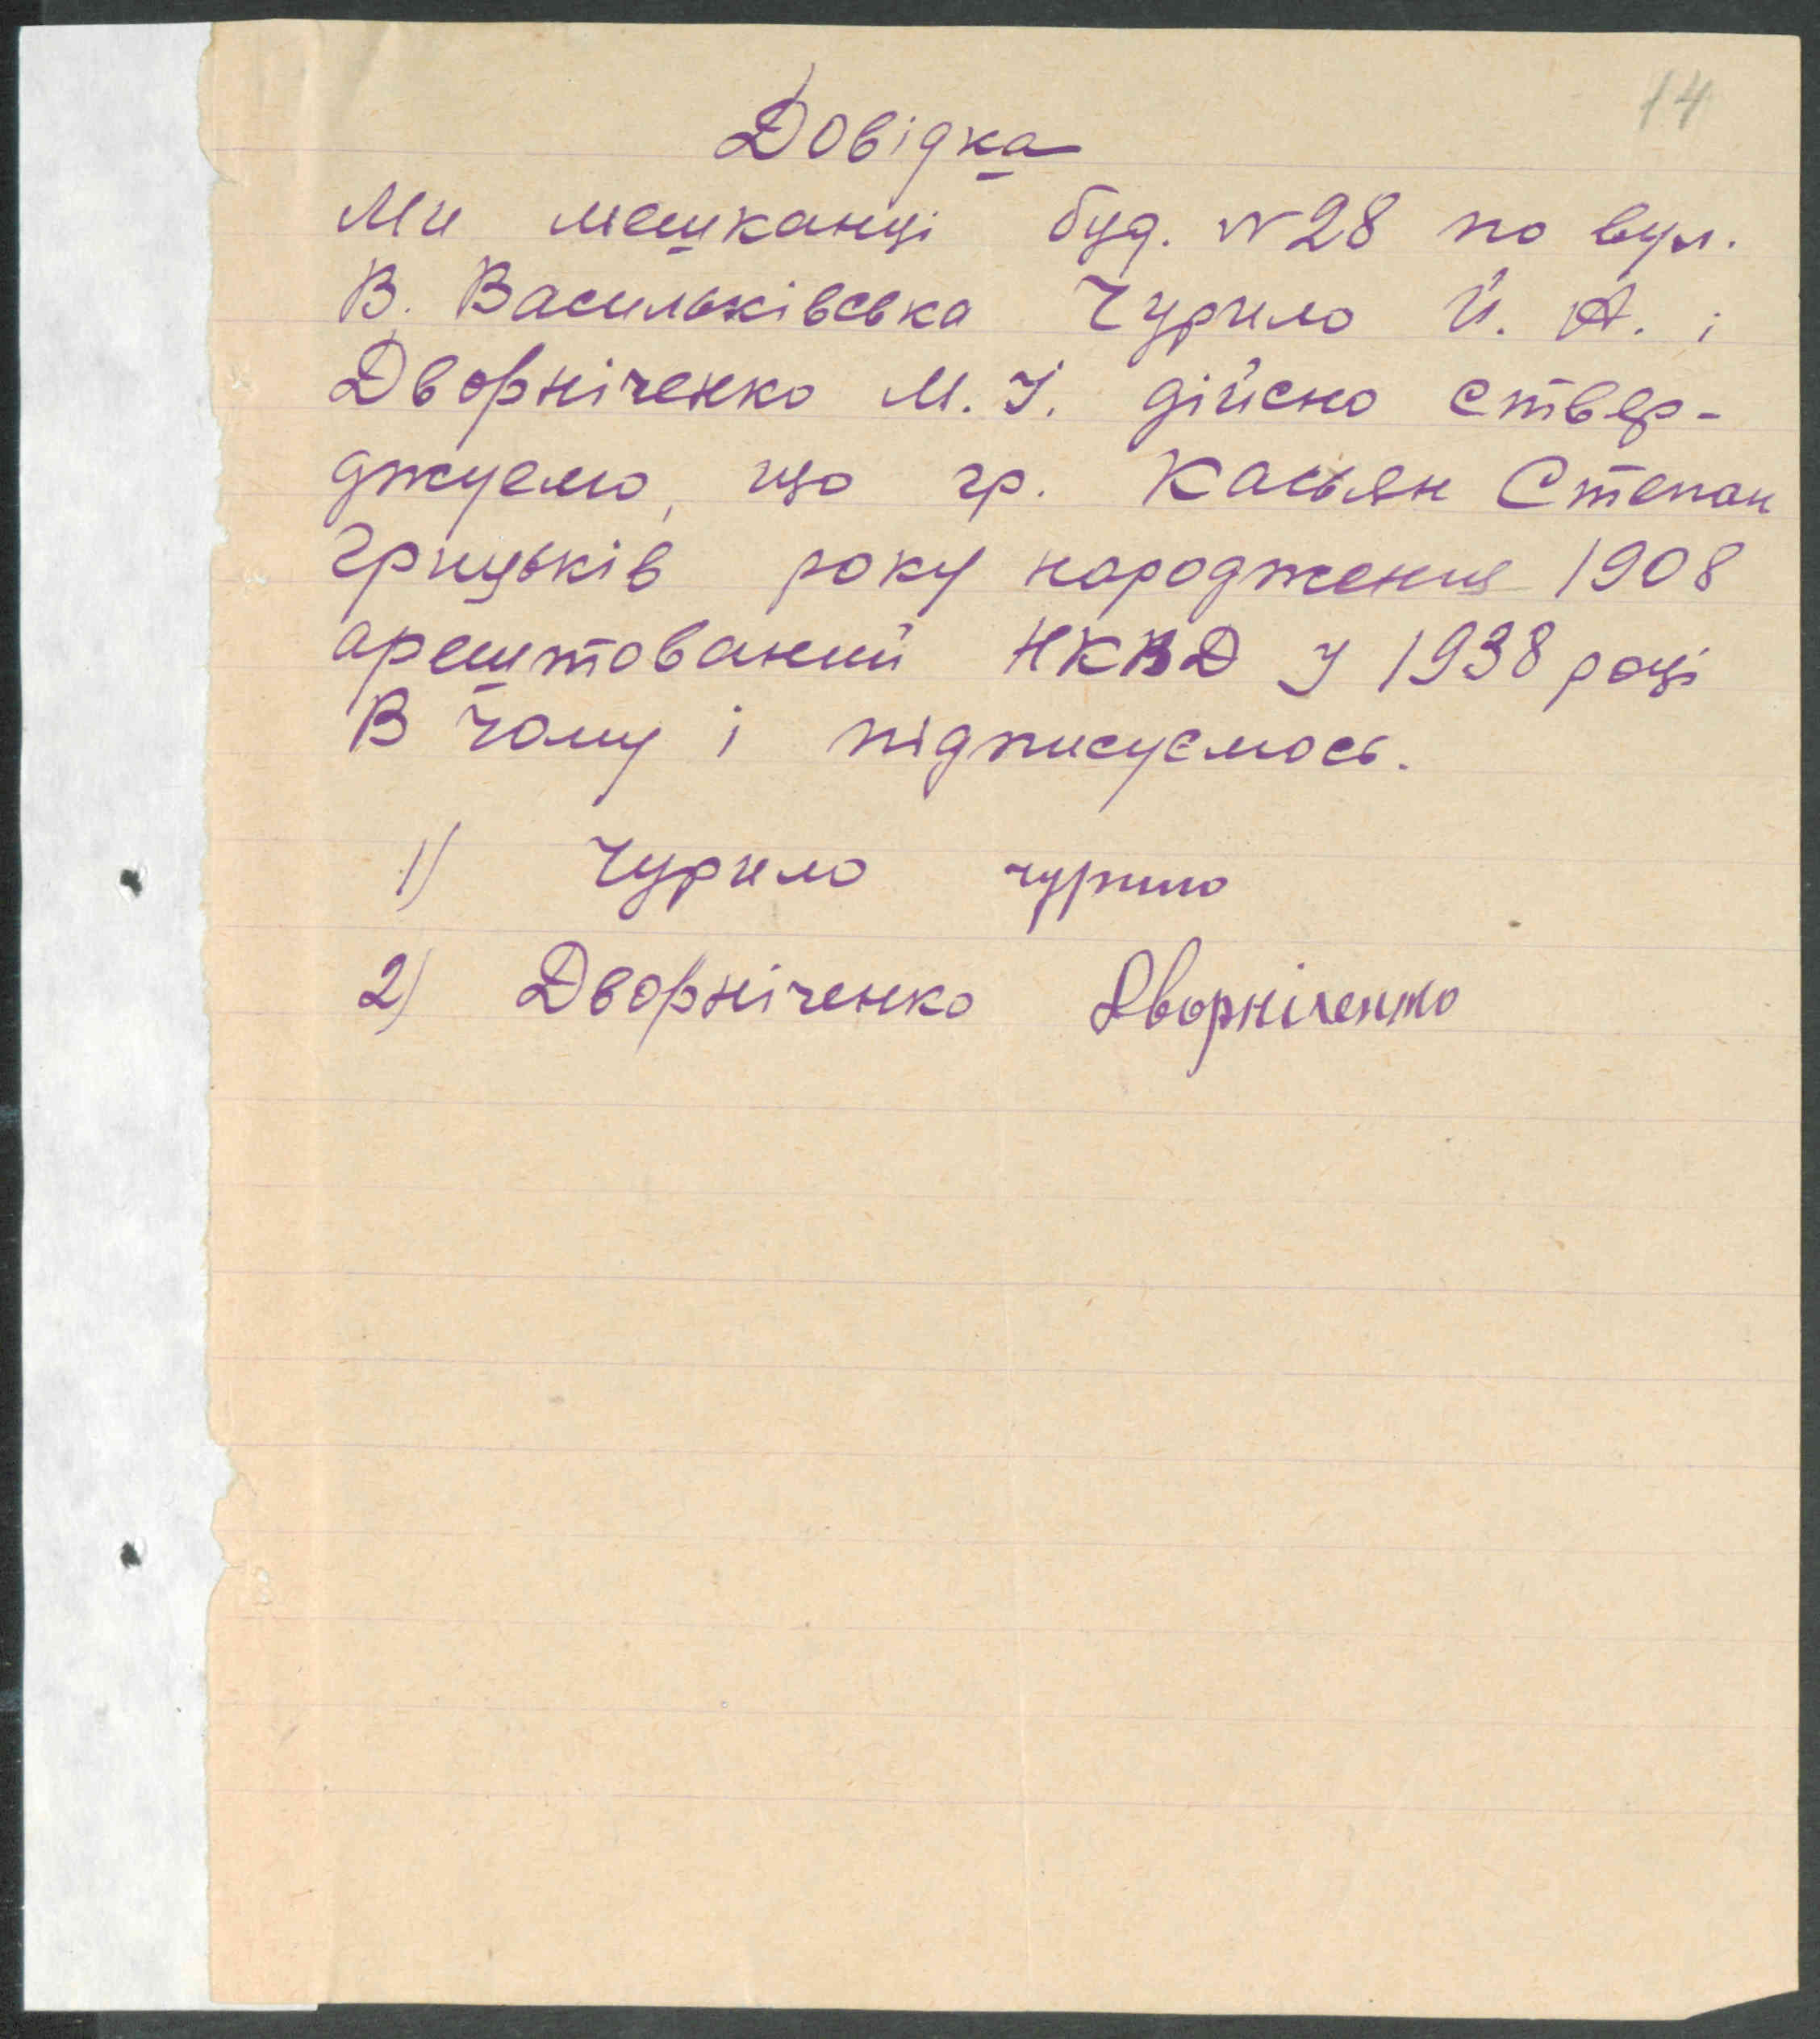 14
Довідка
Ми мешканці буд. №28 по вул.
В. Васильківська Чурило Й. А. і
Дворніченко М. І. дійсно ствер-
джуємо, що гр. Касьян Степан
Грицьків року народження 1908
арештований НКВД у 1938 році
В чому і підписуємось.
1) Чурило чурило
2) Дворніченко Дворніченко